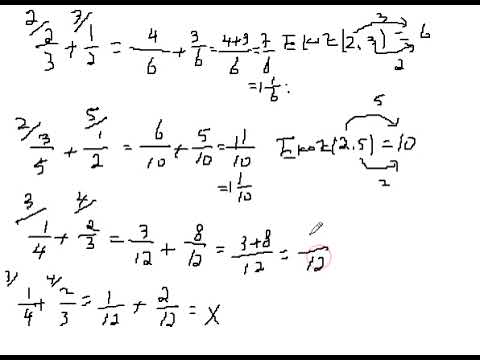 2/ 2/3 + 3/ 1/2 = 4/6 + 3/6 = 4+3/6 = 7/6 (2,3) = 6
3 2
= 1 1/6
2/ 3/5 + 5/ 1/2 = 6/10 + 5/10 = 11/10 (2,5) = 10
5 2
= 1 1/10
3/ 1/4 + 4/ 2/3 = 3/12 + 8/12 = 3+8/12 = /12
3/ 1/4 + 4/ 2/3 = 1/12 + 2/12 = X